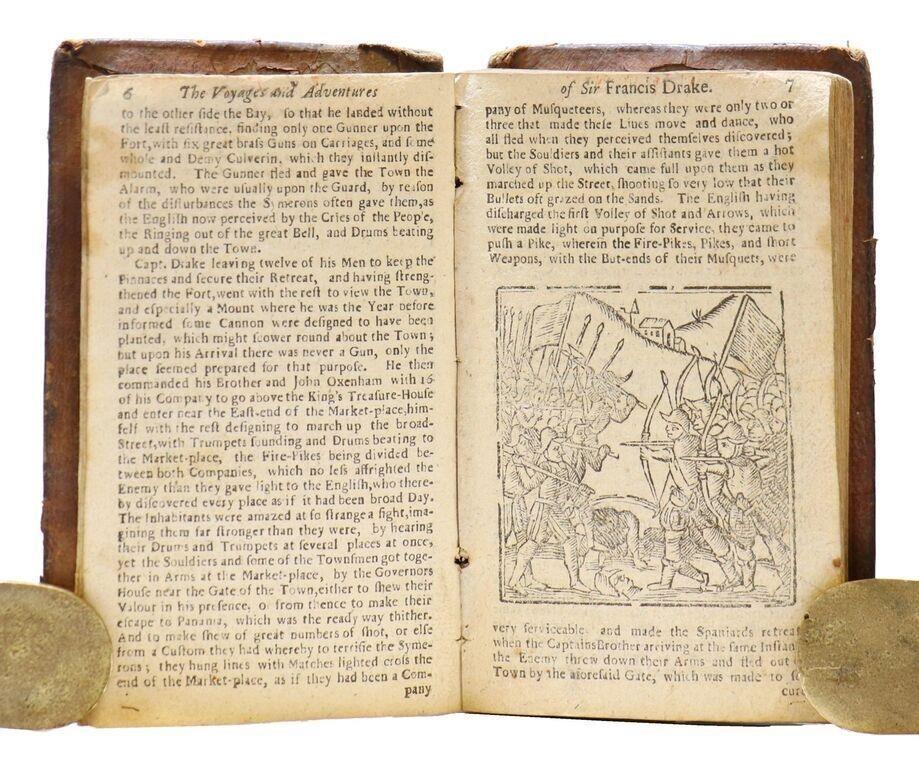 6 The Voyages and Adventures
to the other ſide the Bay, ſo that he landed without
the leaſt reſiſtance, finding only one Gunner upon the
Fort, with ſix great braſs Guns on Carriages, and ſome
whole and Demy Culverin, which they inſtantly diſ-
mounted. The Gunner fled and gave the Town the
Alarm, who were uſually upon the Guard, by reaſon
of the diſturbances the Symerons often gave them, as
the Engliſh now perceived by the Cries of the People,
the Ringing out of the great Bell, and Drums beating
up and down the Town.
Capt. Drake leaving twelve of his Men to keep the
Pinnaces and ſecure their Retreat, and having ſtreng-
thened the Fort, went with the reſt to view the Town,
and eſpecially a Mount where he was the Year before
informed ſome Cannon were deſigned to have been
planted, which might ſcower round about the Town;
but upon his Arrival there was never a Gun, only the
place ſeemed prepared for that purpoſe. He then
commanded his Brother and John Oxenham with 16
of his Company to go above the King's Treaſure-Houſe
and enter near the Eaſt-end of the Market-place, him-
ſelf with the reſt deſigning to march up the broad-
Street, with Trumpets ſounding and Drums beating to
the Market-place, the Fire-Pikes being divided be-
tween both Companies, which no leſs affrighted the
Enemy than they gave light to the Engliſh, who there-
by diſcovered every place as if it had been broad Day.
The Inhabitants were amazed at ſo ſtrange a ſight, ima-
gining them far ſtronger than they were, by hearing
their Drums and Trumpets at ſeveral places at once,
yet the Souldiers and ſome of the Townſmen got toge-
ther in Arms at the Market-place, by the Governors
Houſe near the Gate of the Town, either to ſhew their
Valour in his preſence, or from thence to make their
eſcape to Panama, which was the ready way thither.
And to make ſhew of great numbers of ſhot, or elſe
from a Cuſtom they had whereby to terrifie the Syme-
rons; they hung lines with Matches lighted croſs the
end of the Market-place, as if they had been a Com-
pany
of Sir Francis Drake. 7
pany of Muſqueteers, whereas they were only two or
three that made theſe Lines move and dance, who
all fled when they perceived themſelves diſcovered;
but the Souldiers and their aſſiſtants gave them a hot
Volley of Shot, which came full upon them as they
marched up the Street, ſhooting ſo very low that their
Bullets oft grazed on the Sands. The Engliſh having
diſcharged the firſt Volley of Shot and Arrows, which
were made light on purpoſe for Service, they came to
puſh a Pike, wherein the Fire-Pikes, Pikes, and ſhort
Weapons, with the But-ends of their Muſquets, were
very ſerviceable and made the Spaniards retreat
when the Captains Brother arriving at the ſame Inſtan
the Enemy threw down their Arms and fled out
Town by the aforeſaid Gate, which was made to
cure